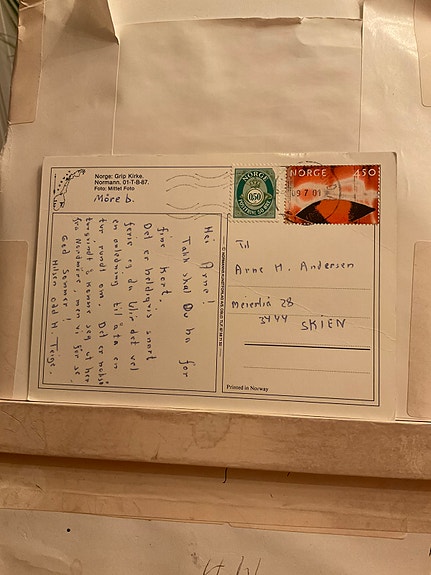 Norge: Grip Kirke.
Normann. 01-T-B-87.
Foto: Mittet Foto
Möre b.
NORGE
050
NORGE 450
09 7 01
Hei Arne!
Takk skal Du ha for
fine kort.
Det er heldigvis snart
ferie så da blir det vel
en anledning til å ta en
tur rundt om. Det er
å komme seg ut her
fra Nordmøre men vi får se.
God Sommer!
Hilsen Odd H. Teige.
Til
Arne M. Andersen
Meierlia 28
3744 SKIEN
Printed in Norway